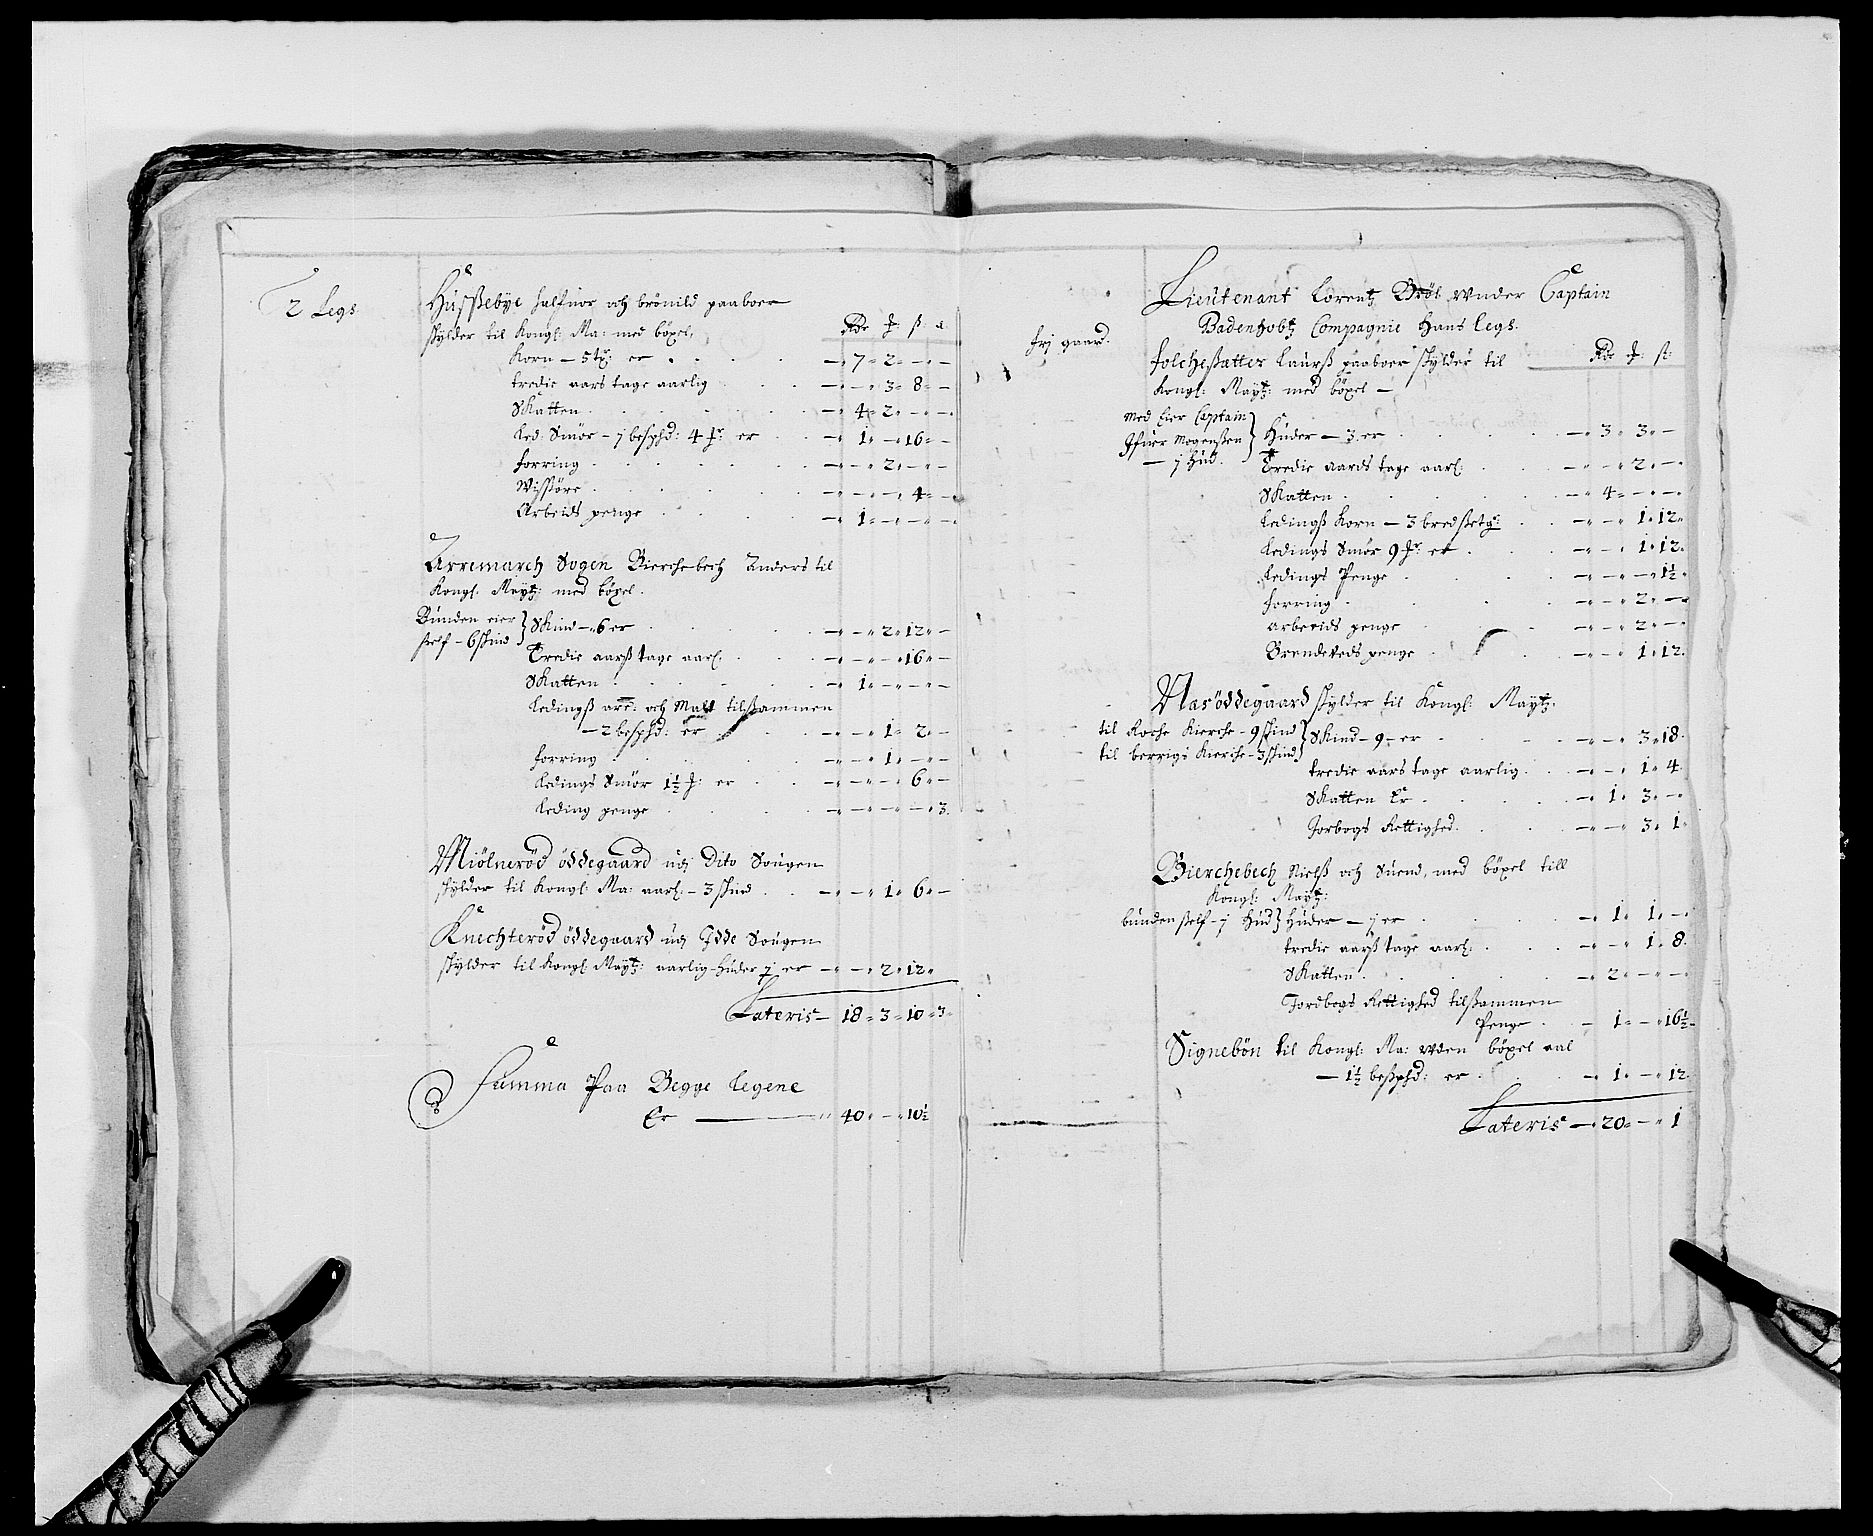 2 Legs
Hussebye halfuor och brönild paaboer
skylder til Kongl: Ma: med böxel,
Rdr ƒ: ß: d:
Korn — 5 tr: er — 7 " 2 " — " —
tredie aars tage aarlig — " — " 3 " 8 " —
Skatten — " 4 " 2 " — " —
Led: Smör — j besphd: 4 fr: er — " 1 " — " 16 " —
forring — " — " 2 " — " —
Wissöre — " — " — " 4 " —
Arbeids penge — " 1 " — " — " —
Arremarch Sogen Bierchebech Anders til
Kongl: Maytz: med böxel.
Bunden eier
self — 6 skind } Skind — 6 er — " — " 2 " 12 " —
Tredie aarß tage aarl: — " — " — " 16 " —
Skatten — " 1 " — " — " —
Ledingß arr: och Malt tilsammen
— 2 besphd: er — " — " 1 " 2 " —
forring — " — " 1 " — " —
Ledings Smör 1½ ƒ: er — " — " — " 6 " —
Leding penge — " — " — " — " 3
Miölneröd öddegaard udj Dito Sougen
skylder til Kongl: Ma: aarl: — 3 skind — " — " 1 " 6 " —
Knechteröd öddegaard udj Idde Sougen
skylder til Kongl: Maytz: aarlig huder j er — " — " 2 " 12 "
Lateris — 18 " 3 " 10 " 3
Summa Paa Begge Legene
Er — 40 " — " 10½
Lieutenant Lorentz Bröl under Captain
Badenhobtz Compagnie Hans Legs.
frj gaard.
folchesatter Laurß paaboer skylder til
Rdr ƒ: ß:
Kongl: Maytz: med böxel —
med Eier Captain
Ifuer Mogenssen
— j hud. } Huder — 3 er — " 3 " 3 " —
Tredie aards tage aarl: — " — " 2 " —
Skatten — " 4 " — " —
Ledingß Korn — 3 bredsetg: — " — " 1 " 12 "
Ledings Smör 9 fr: er — " — " 1 " 12
Ledings Penge — " — " — " 1½
forring — " — " 2 " —
arbeids penge — " — " 2 " —
Brendeveds penge — " — " 1 " 12
Nasöddegaard skylder til Kongl: Maytz:
til Roche Kierche — 9 skind
til berrigs Kierche — 3 skind } Skind — 9 — er — " — " 3 " 18
tredie aars tage aarlig — " — " 1 " 4
Skatten Er — " 1 " 3 " —
Jorbogs Rettighed — " — " 3 " 1
Bierchebech Nielß och Suend, med böxel till
Kongl: Maytz:
bunden self — j Hud } Huder — j er — " 1 " 1 " —
tredie aarß tage aarl: — " — " 1 " 8
Skatten — " 2 " — " —
Jordbogs Rettighed tilsammen
Penge — 1 " — " 16½
Signebön til Kongl: Ma: uden böxel aal
— 1½ besphd: er — " 1 " — " 12
Lateris — " 20 " — " 1